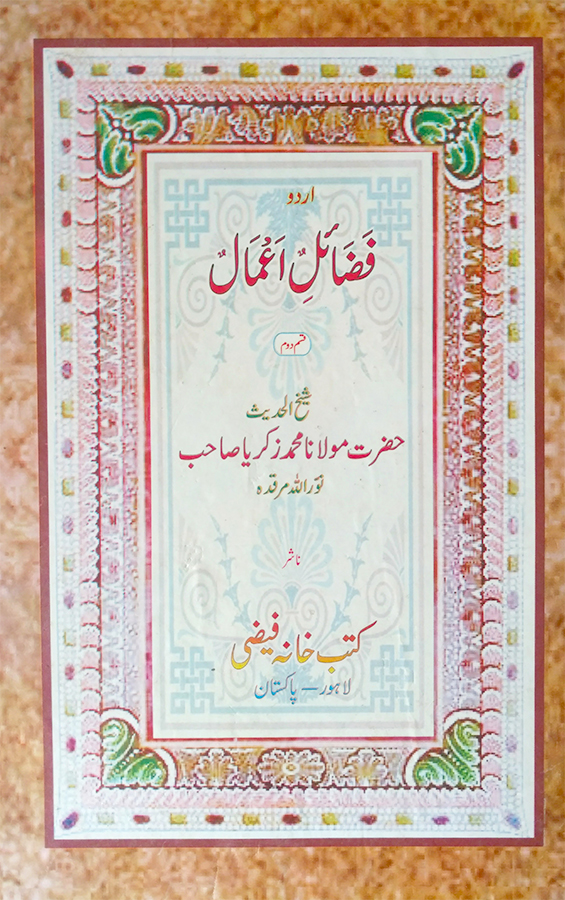 اردو
فَضَائِلِ اَعْمَال
قسم دوم
شیخ الحدیث
حضرت مولانا محمد زکریا صاحب
نور اللہ مرقدہ
ناشر
کتب خانہ فیضی
لاہور – پاکستان